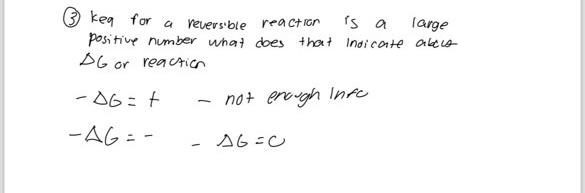 ③ keq for a reversible reaction is a large
positive number what does that indicate about
ΔG or reaction
- ΔG = + - not enough info
- ΔG = - - ΔG = 0